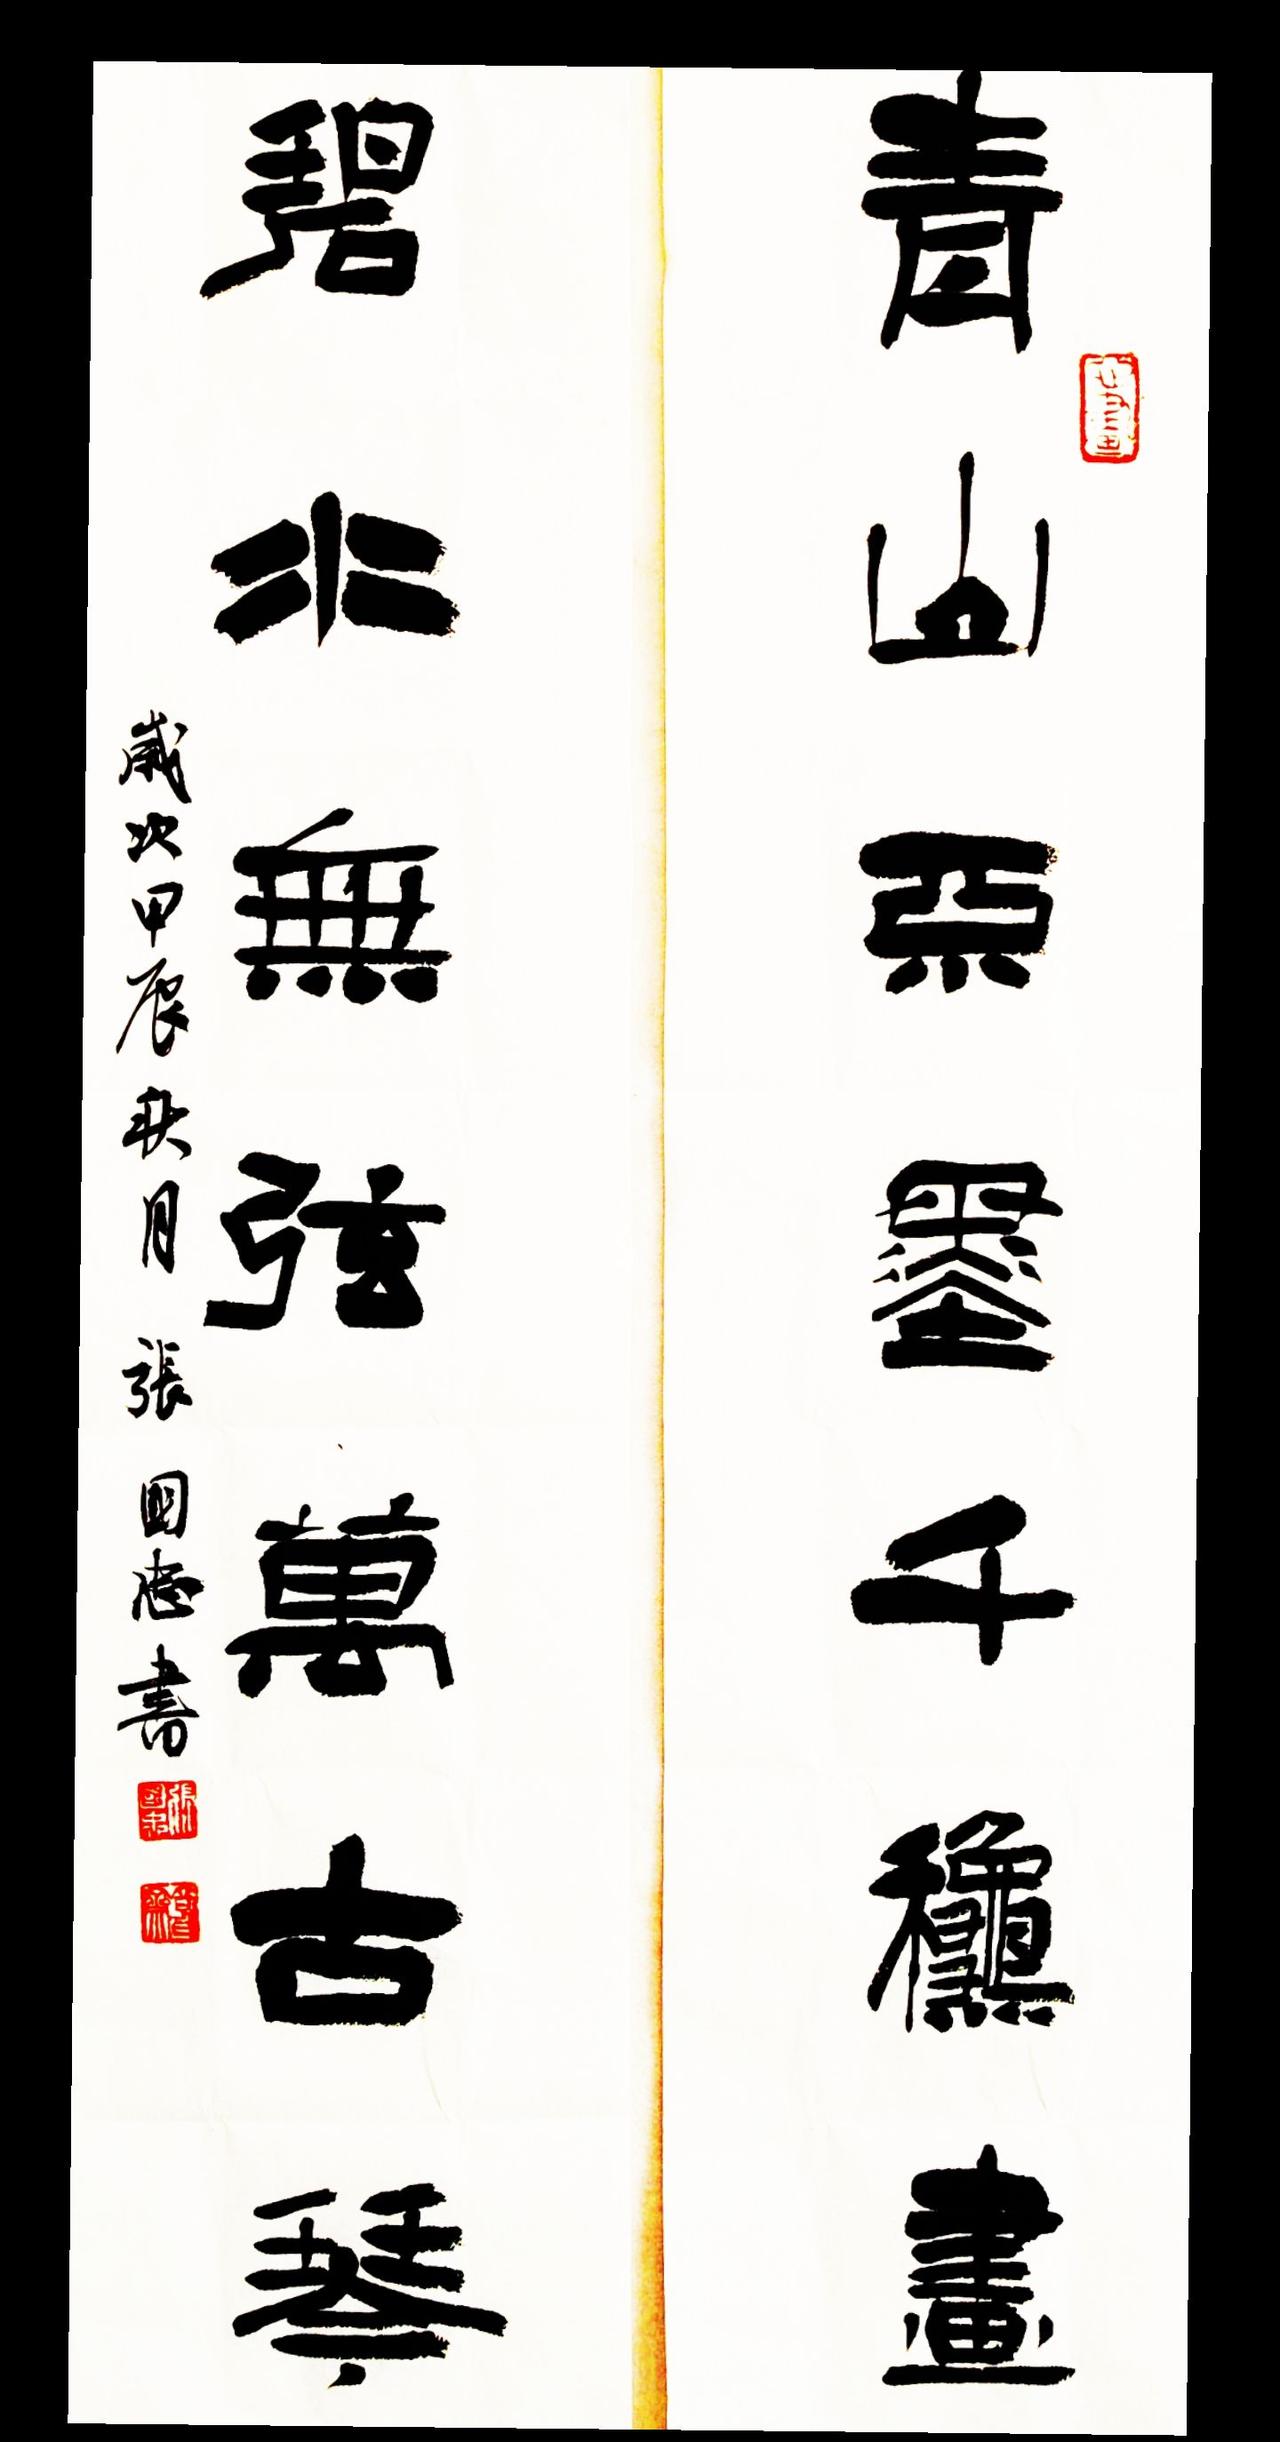 青山不墨千龝畫
碧水無弦萬古琴
歲次甲辰秋月 張國志書